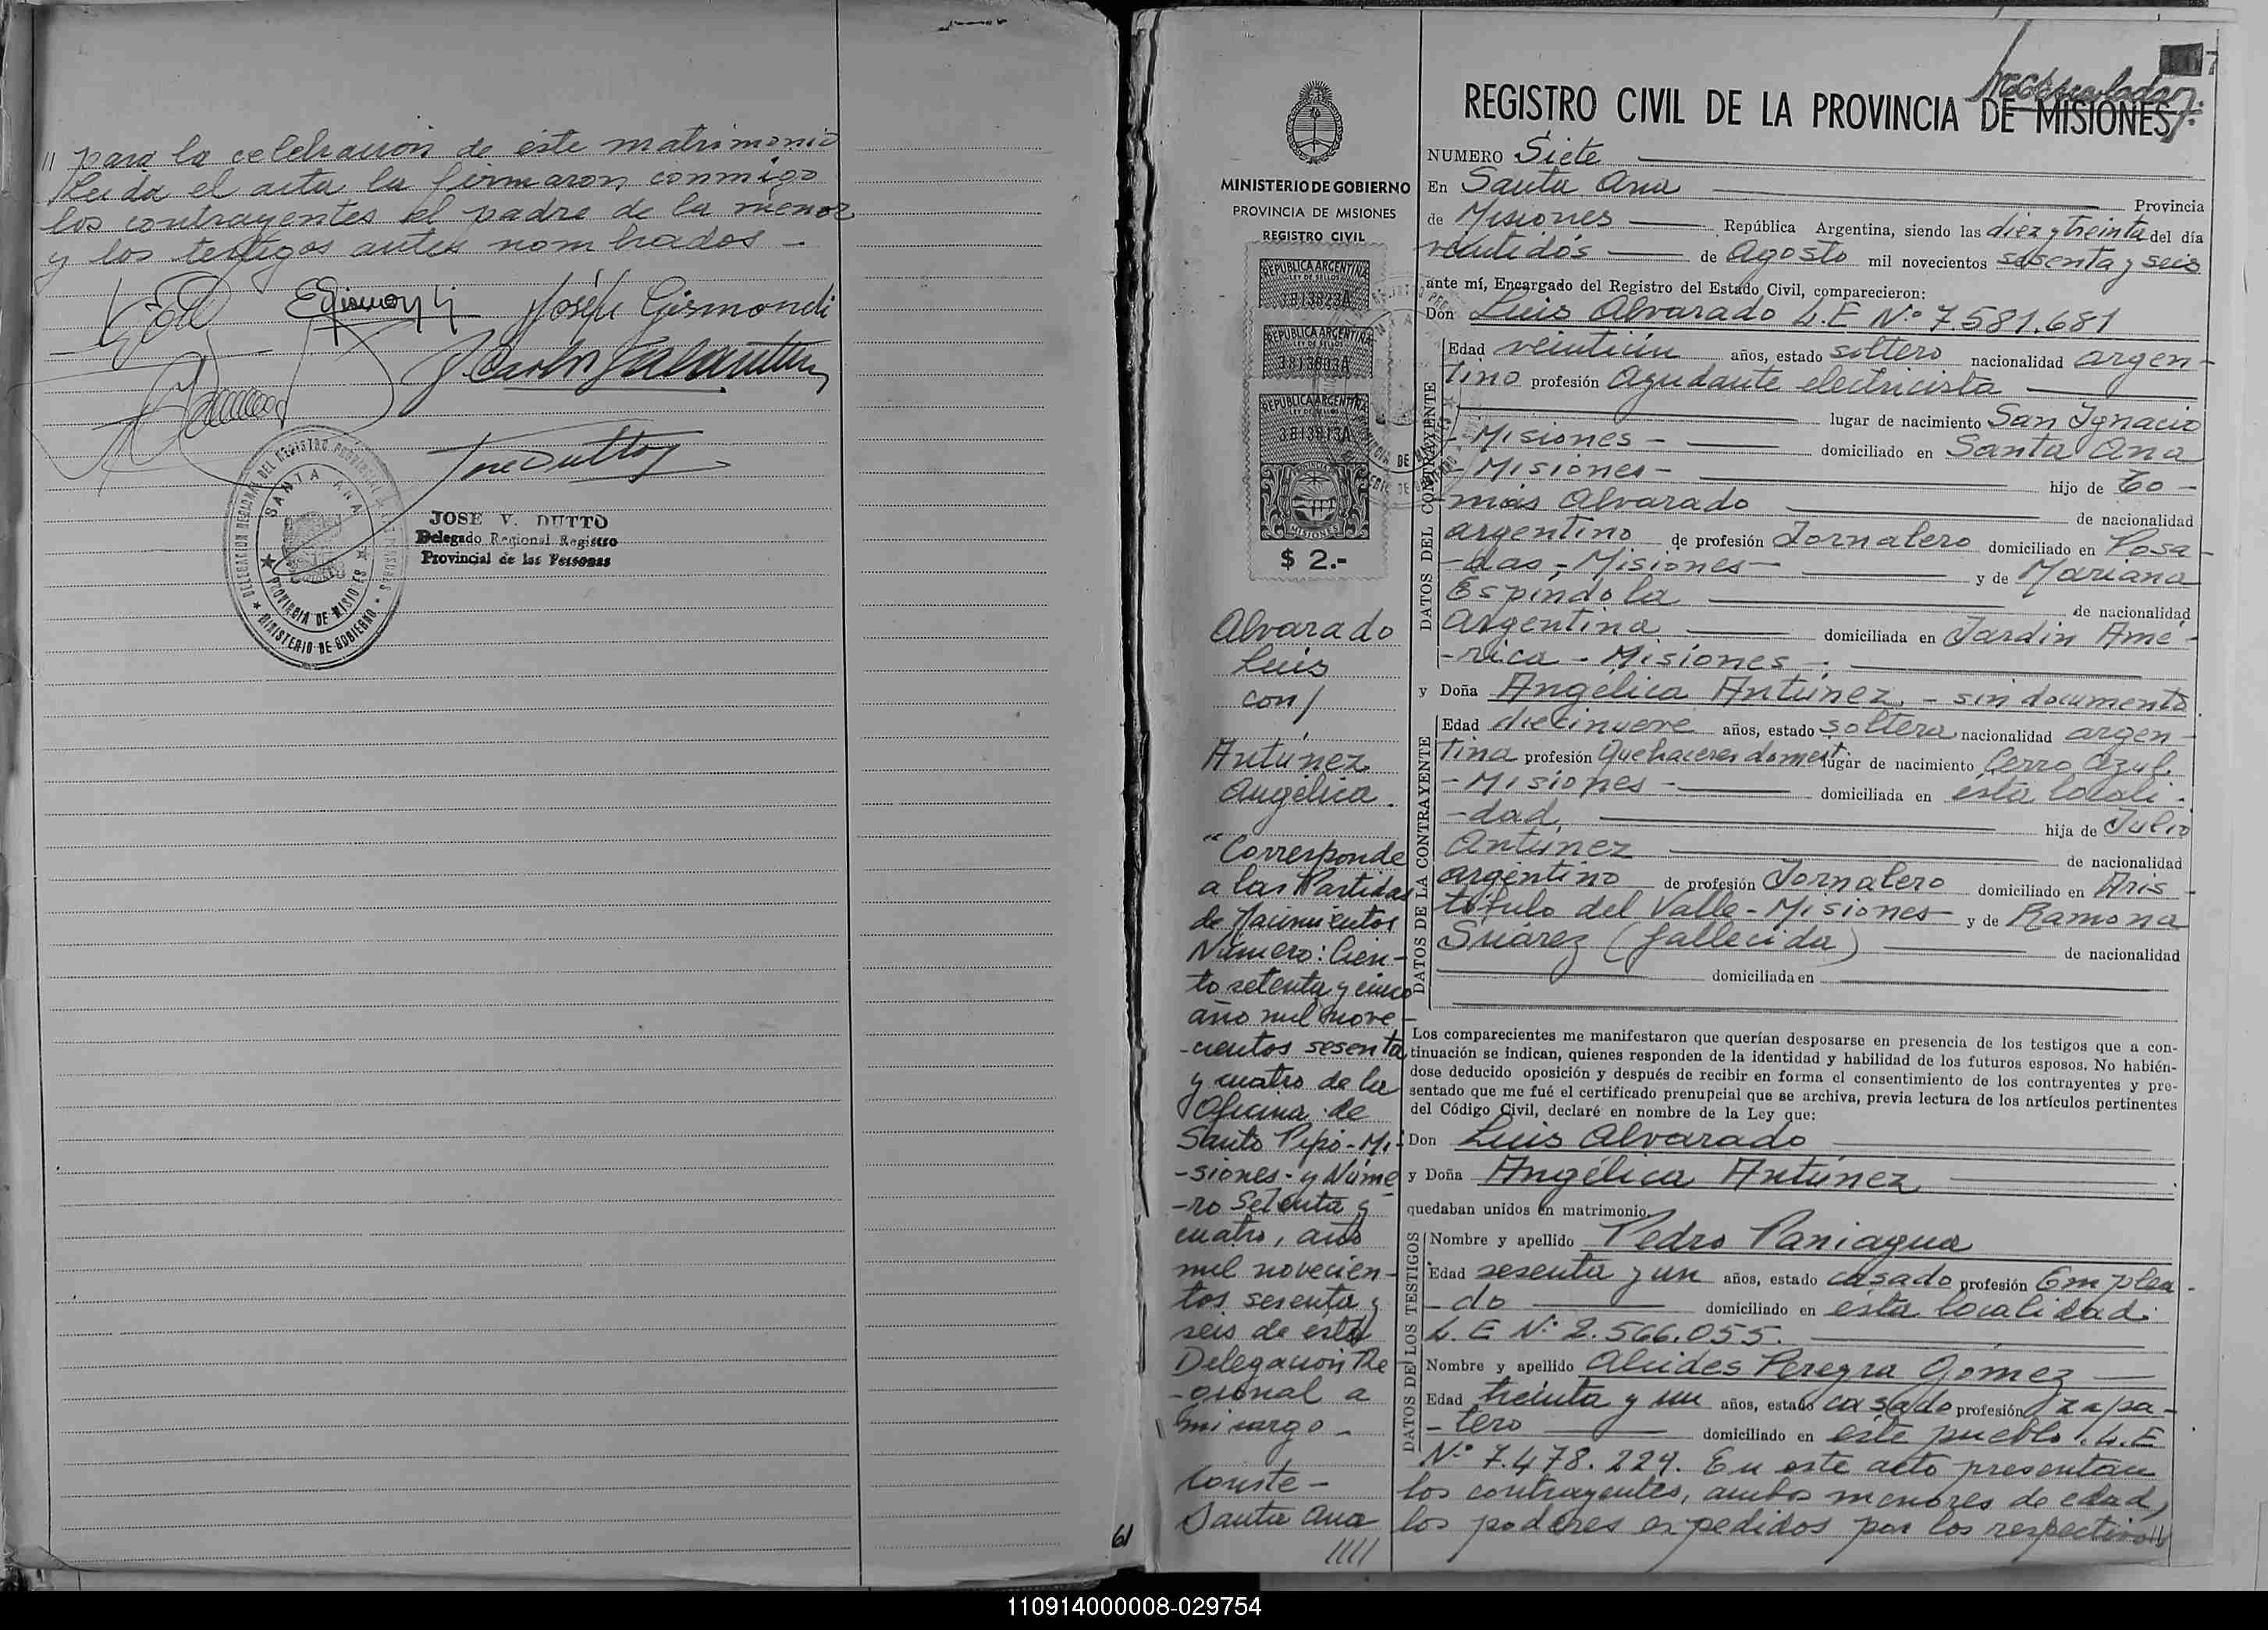 // para la celebración de éste matrimonio
Leída el acta la firmaron conmigo
los contrayentes el padre de la menor
y los testigos antes nombrados -
Joséfa Gismondi
José Dutto
DELEGACION REGIONAL DEL REGISTRO PROVINCIAL DE LAS PERSONAS
SANTA ANA
PROVINCIA DE MISIONES
MINISTERIO DE GOBIERNO
JOSE V. DUTTO
Delegado Regional Registro
Provincial de las Personas
61
MINISTERIO DE GOBIERNO
PROVINCIA DE MISIONES
REGISTRO CIVIL
REPUBLICA ARGENTINA
LEY DE SELLOS
3813823A
REPUBLICA ARGENTINA
LEY DE SELLOS
3813803A
REPUBLICA ARGENTINA
LEY DE SELLOS
3813813A
MISIONES
$ 2.-
Alvarado
Luis
con/
Antúnez
Angélica.
"Corresponde
a las Partidas
de Nacimientos
Número: Cien-
to setenta y cinco
año mil nove-
-cientos sesenta
y cuatro de la
Oficina de
Santo Pipó - Mi-
-siones - y Núme
-ro Setenta y
cuatro, año
mil novecien-
tos sesenta y
seis de esta
Delegación Re
-gional a
mi cargo -
Conste -
Santa Ana
////
7
REGISTRO CIVIL DE LA PROVINCIA DE MISIONES
NUMERO Siete
En Santa Ana Provincia
de Misiones República Argentina, siendo las diez y treinta del día
veintidós de Agosto mil novecientos sesenta y seis
ante mí, Encargado del Registro del Estado Civil, comparecieron:
Don Luis Alvarado L.E Nº 7.581.681
DATOS DEL CONTRAYENTE
Edad veintiún años, estado soltero nacionalidad argen-
tino profesión Ayudante electricista
lugar de nacimiento San Ignacio
- Misiones - domiciliado en Santa Ana
- Misiones - hijo de To-
más Alvarado de nacionalidad
argentino de profesión Jornalero domiciliado en Posa-
-das - Misiones - y de Mariana
Espíndola de nacionalidad
Argentina domiciliada en Jardín Amé-
-rica - Misiones -
y Doña Angélica Antúnez - sin documento
DATOS DE LA CONTRAYENTE
Edad diecinueve años, estado soltera nacionalidad argen-
tina profesión Quehaceres domest. lugar de nacimiento Cerro Azul
- Misiones - domiciliada en ésta locali-
-dad. hija de Julio
Antúnez de nacionalidad
argentino de profesión Jornalero domiciliado en Aris-
tóbulo del Valle - Misiones y de Ramona
Suárez (fallecida) de nacionalidad
domiciliada en
Los comparecientes me manifestaron que querían desposarse en presencia de los testigos que a con-
tinuación se indican, quienes responden de la identidad y habilidad de los futuros esposos. No habién-
dose deducido oposición y después de recibir en forma el consentimiento de los contrayentes y pre-
sentado que me fué el certificado prenupcial que se archiva, previa lectura de los artículos pertinentes
del Código Civil, declaré en nombre de la Ley que:
Don Luis Alvarado
y Doña Angélica Antúnez
quedaban unidos en matrimonio
DATOS DE LOS TESTIGOS
Nombre y apellido Pedro Paniagua
Edad sesenta y un años, estado casado profesión Emplea-
- do domiciliado en ésta localidad.
L. E Nº 2.566.055.
Nombre y apellido Alcides Pereyra Gomez
Edad treinta y un años, estado casado profesión zapa-
- tero domiciliado en éste pueblo. L.E
Nº 7.478.229. En este acto presentan
los contrayentes, ambos menores de edad,
los poderes expedidos por los respectivos//
110914000008-029754